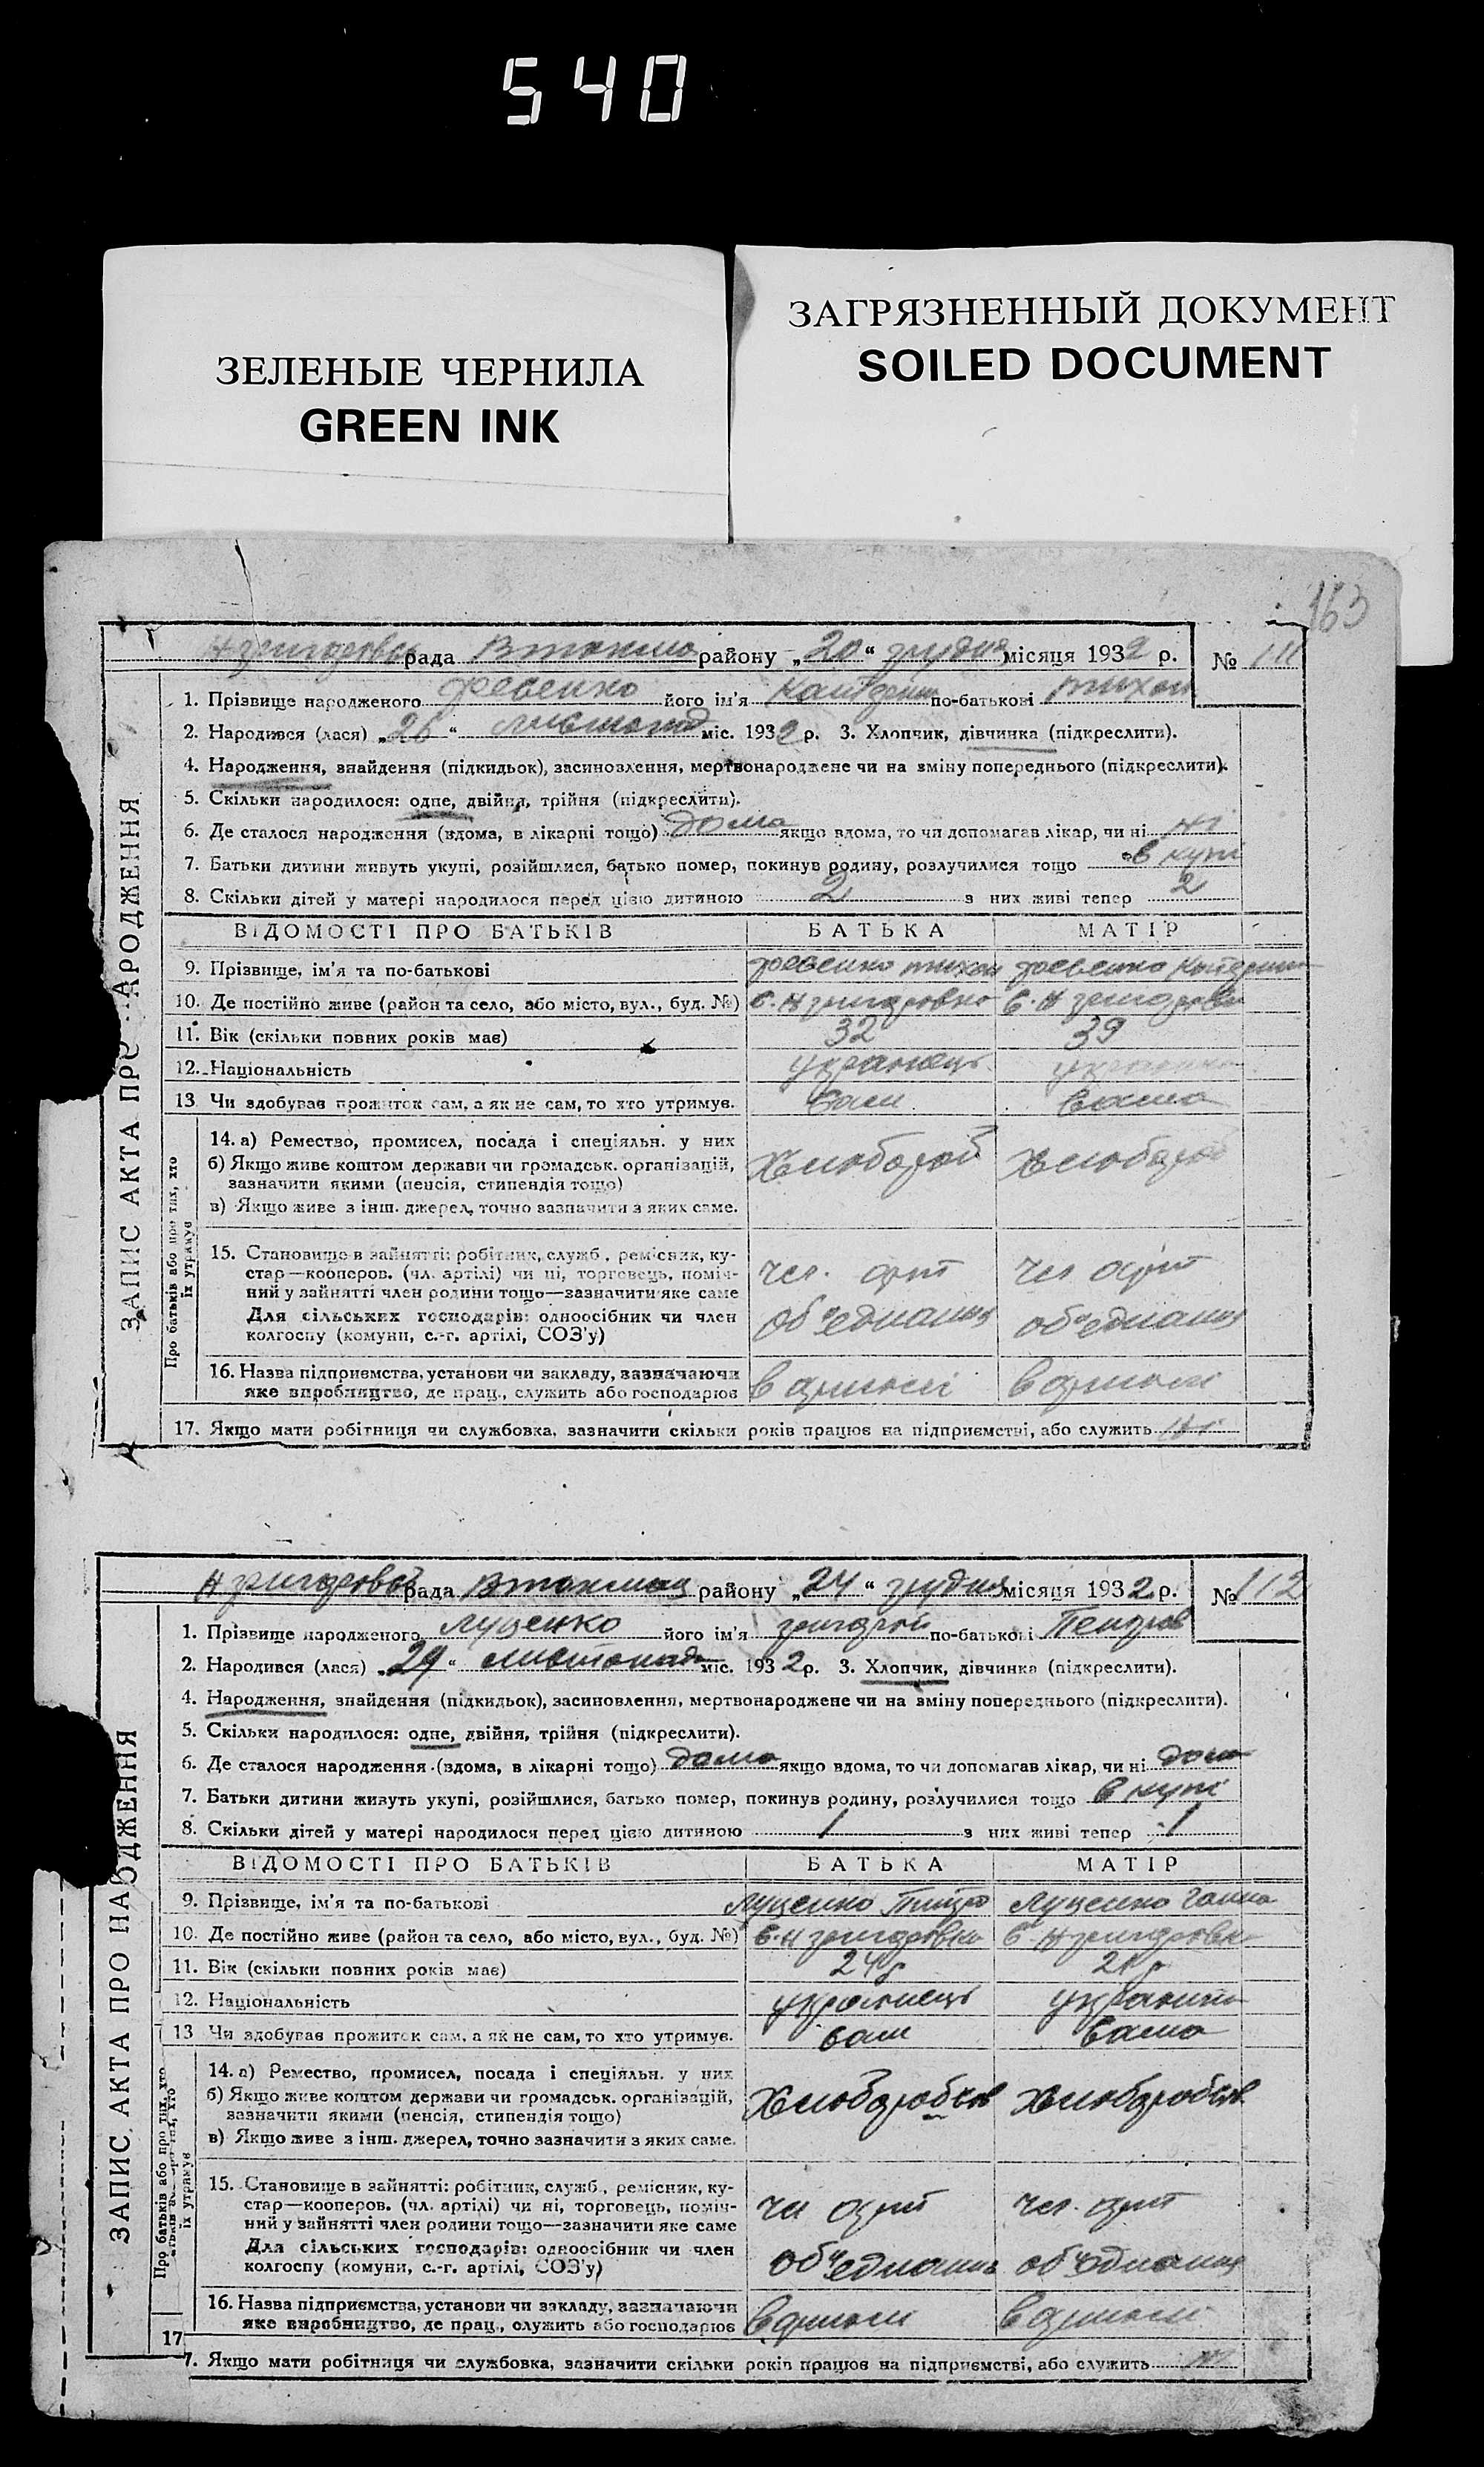 540
ЗЕЛЕНЫЕ ЧЕРНИЛА
GREEN INK
ЗАГРЯЗНЕННЫЙ ДОКУМЕНТ
SOILED DOCUMENT
163
рада району „20“ грудня місяця 1932 р. № 111
1. Прізвище народженого його ім'я по-батькові Тихон
2. Народився (лася) „26“ листопад міс. 1932 р. 3. Хлопчик, дівчинка (підкреслити).
4. Народження, знайдення (підкидьок), засиновлення, мертвонароджене чи на зміну попереднього (підкреслити).
5. Скільки народилося: одне, двійня, трійня (підкреслити).
6. Де сталося народження (вдома, в лікарні тощо) дома якщо вдома, то чи допомагав лікар, чи ні ні
7. Батьки дитини живуть укупі, розійшлися, батько помер, покинув родину, розлучилися тощо в купі
8. Скільки дітей у матері народилося перед цією дитиною 2 з них живі тепер 2
ВІДОМОСТІ ПРО БАТЬКІВ БАТЬКА МАТІР
9. Прізвище, ім'я та по-батькові
10. Де постійно живе (район та село, або місто, вул., буд. №)
11. Вік (скільки повних років має) 32 39
12. Національність українець
13 Чи здобував прожиток сам, а як не сам, то хто утримує. сам сама
14. а) Ремество, промисел, посада і спеціяльн. у них
б) Якщо живе коштом держави чи громадськ. організацій,
зазначити якими (пенсія, стипендія тощо)
в) Якщо живе з інш. джерел, точно зазначити з яких саме.
Хлібороб Хлібороб
15. Становище в зайнятті: робітник, служб., ремісник, ку-
стар—кооперов. (чл. артілі) чи ні, торговець, поміч-
ний у зайнятті член родини тощо—зазначити яке саме
Для сільських господарів: одноосібник чи член
колгоспу (комуни, с.-г. артілі, СОЗ'у)
чл. арт чл арт
об'єднання об'єднання
16. Назва підприємства, установи чи закладу, зазначаючи
яке виробництво, де прац., служить або господарює
в артілі в артілі
17. Якщо мати робітниця чи службовка, зазначити скільки років працює на підприємстві, або служить ні
ЗАПИС АКТА ПРО НАРОДЖЕННЯ
Про батьків або про тих, хто
їх утримує
рада району „24“ грудня місяця 1932 р. № 112
1. Прізвище народженого Луценко його ім'я Григорій по-батькові Петров
2. Народився (лася) „29“ листопада міс. 1932 р. 3. Хлопчик, дівчинка (підкреслити).
4. Народження, знайдення (підкидьок), засиновлення, мертвонароджене чи на зміну попереднього (підкреслити).
5. Скільки народилося: одне, двійня, трійня (підкреслити).
6. Де сталося народження (вдома, в лікарні тощо) дома якщо вдома, то чи допомагав лікар, чи ні дома
7. Батьки дитини живуть укупі, розійшлися, батько помер, покинув родину, розлучилися тощо в купі
8. Скільки дітей у матері народилося перед цією дитиною 1 з них живі тепер 1
ВІДОМОСТІ ПРО БАТЬКІВ БАТЬКА МАТІР
9. Прізвище, ім'я та по-батькові Луценко Петро Луценко Ганна
10. Де постійно живе (район та село, або місто, вул., буд. №)
11. Вік (скільки повних років має) 24 р 21 р
12. Національність українець
13 Чи здобував прожиток сам, а як не сам, то хто утримує. сам сама
14. а) Ремество, промисел, посада і спеціяльн. у них
б) Якщо живе коштом держави чи громадськ. організацій,
зазначити якими (пенсія, стипендія тощо)
в) Якщо живе з інш. джерел, точно зазначити з яких саме.
15. Становище в зайнятті: робітник, служб., ремісник, ку-
стар—кооперов. (чл. артілі) чи ні, торговець, поміч-
ний у зайнятті член родини тощо—зазначити яке саме
Для сільських господарів: одноосібник чи член
колгоспу (комуни, с.-г. артілі, СОЗ'у)
чл арт чл. арт
об'єднання об'єднання
16. Назва підприємства, установи чи закладу, зазначаючи
яке виробництво, де прац., служить або господарює
в артілі в артілі
17
7. Якщо мати робітниця чи службовка, зазначити скільки років працює на підприємстві, або служить ні
ЗАПИС АКТА ПРО НАРОДЖЕННЯ
Про батьків або про тих, хто
їх утримує